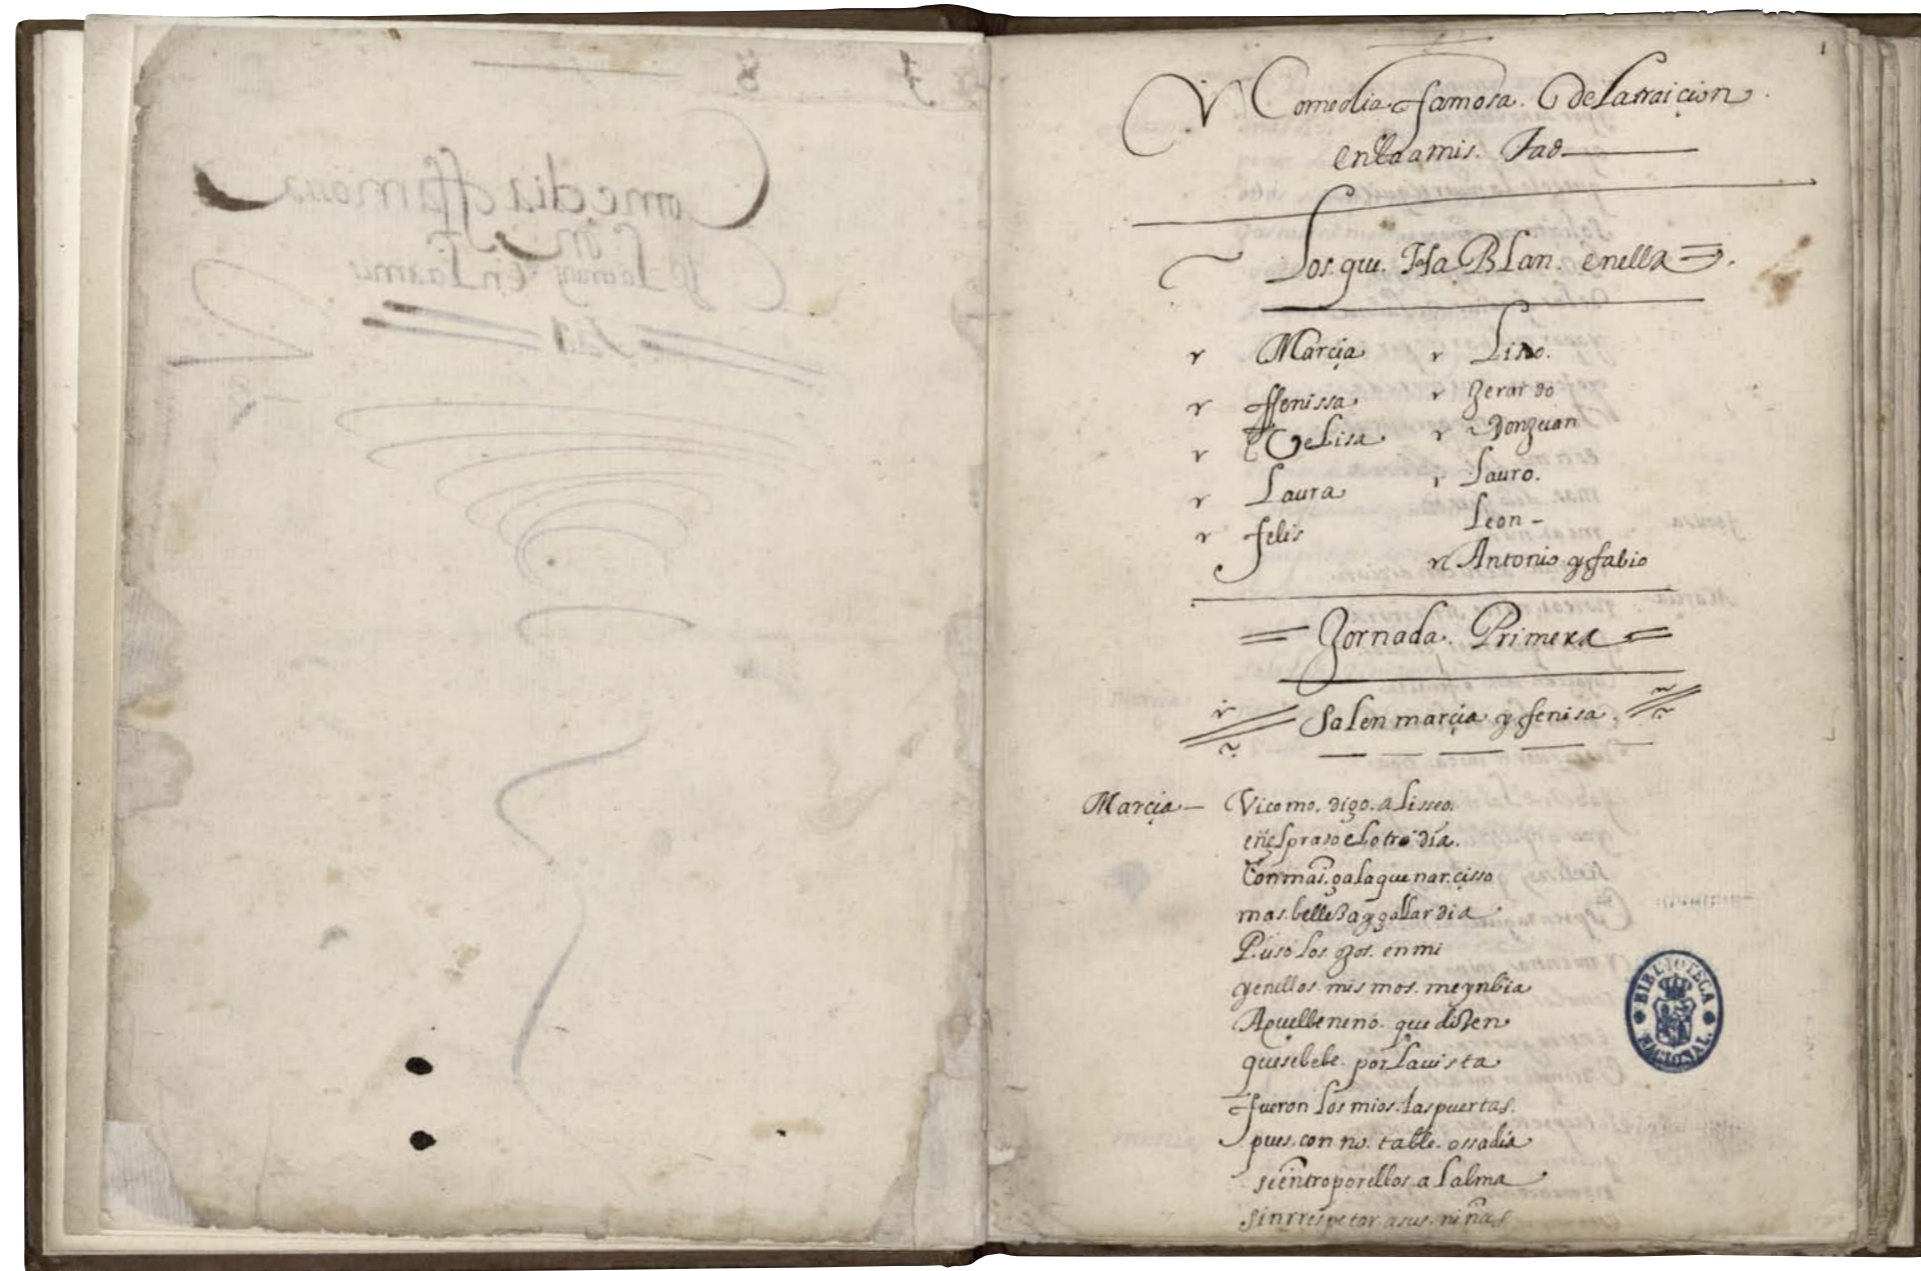 Comedia ffamosa
De la traiçion en la amis
tad
1
Comedia famosa. de la traiçion
en la amis. tad
Los que. Ha Blan. en ella
Marçia
ffenissa
Belisa
Laura
felis
Liseo.
Zerardo
Don zuan
Lauro.
Leon -
Antonio y fabio
Zornada. Primera
Salen marçia y fenisa.
Marçia — Vi como. digo. a Lisseo.
en el prado el otro día.
Con mas. gala que nar.çisso
mas. belleza y gallardia
Puso los. ojos. en mi
y en ellos. mismos. me ynbia
Aquel beneno. que dizen
que se bebe. por la uista
fueron los mios. las puertas.
pues. con no. table. ossadia
se entro por ellos. a l alma
sin rrespetar. a sus. niñas
BIBLIOTECA NACIONAL.